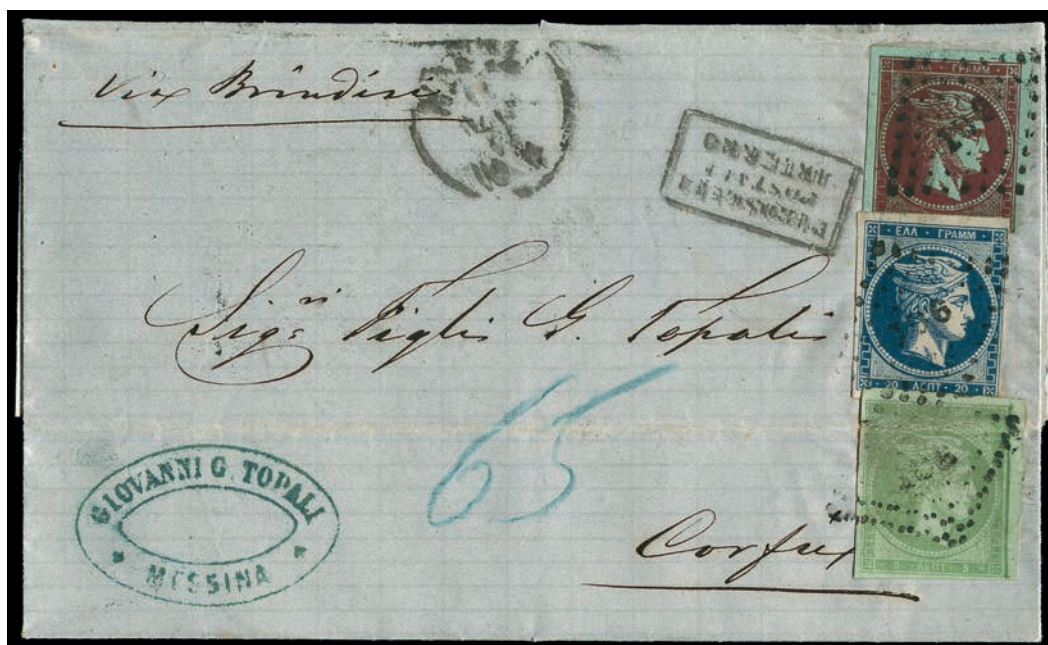 Via Brindisi
PIROSCAFI
POSTALI
ΓΡΑΜΜ
ΕΛΛ · ΓΡΑΜΜ
20 · ΛΕΠΤ · 20
Sigri Figli G. Topali
65
GIOVANNI G. TOPALI
MESSINA
Corfu
5 ΛΕΠΤΑ 5